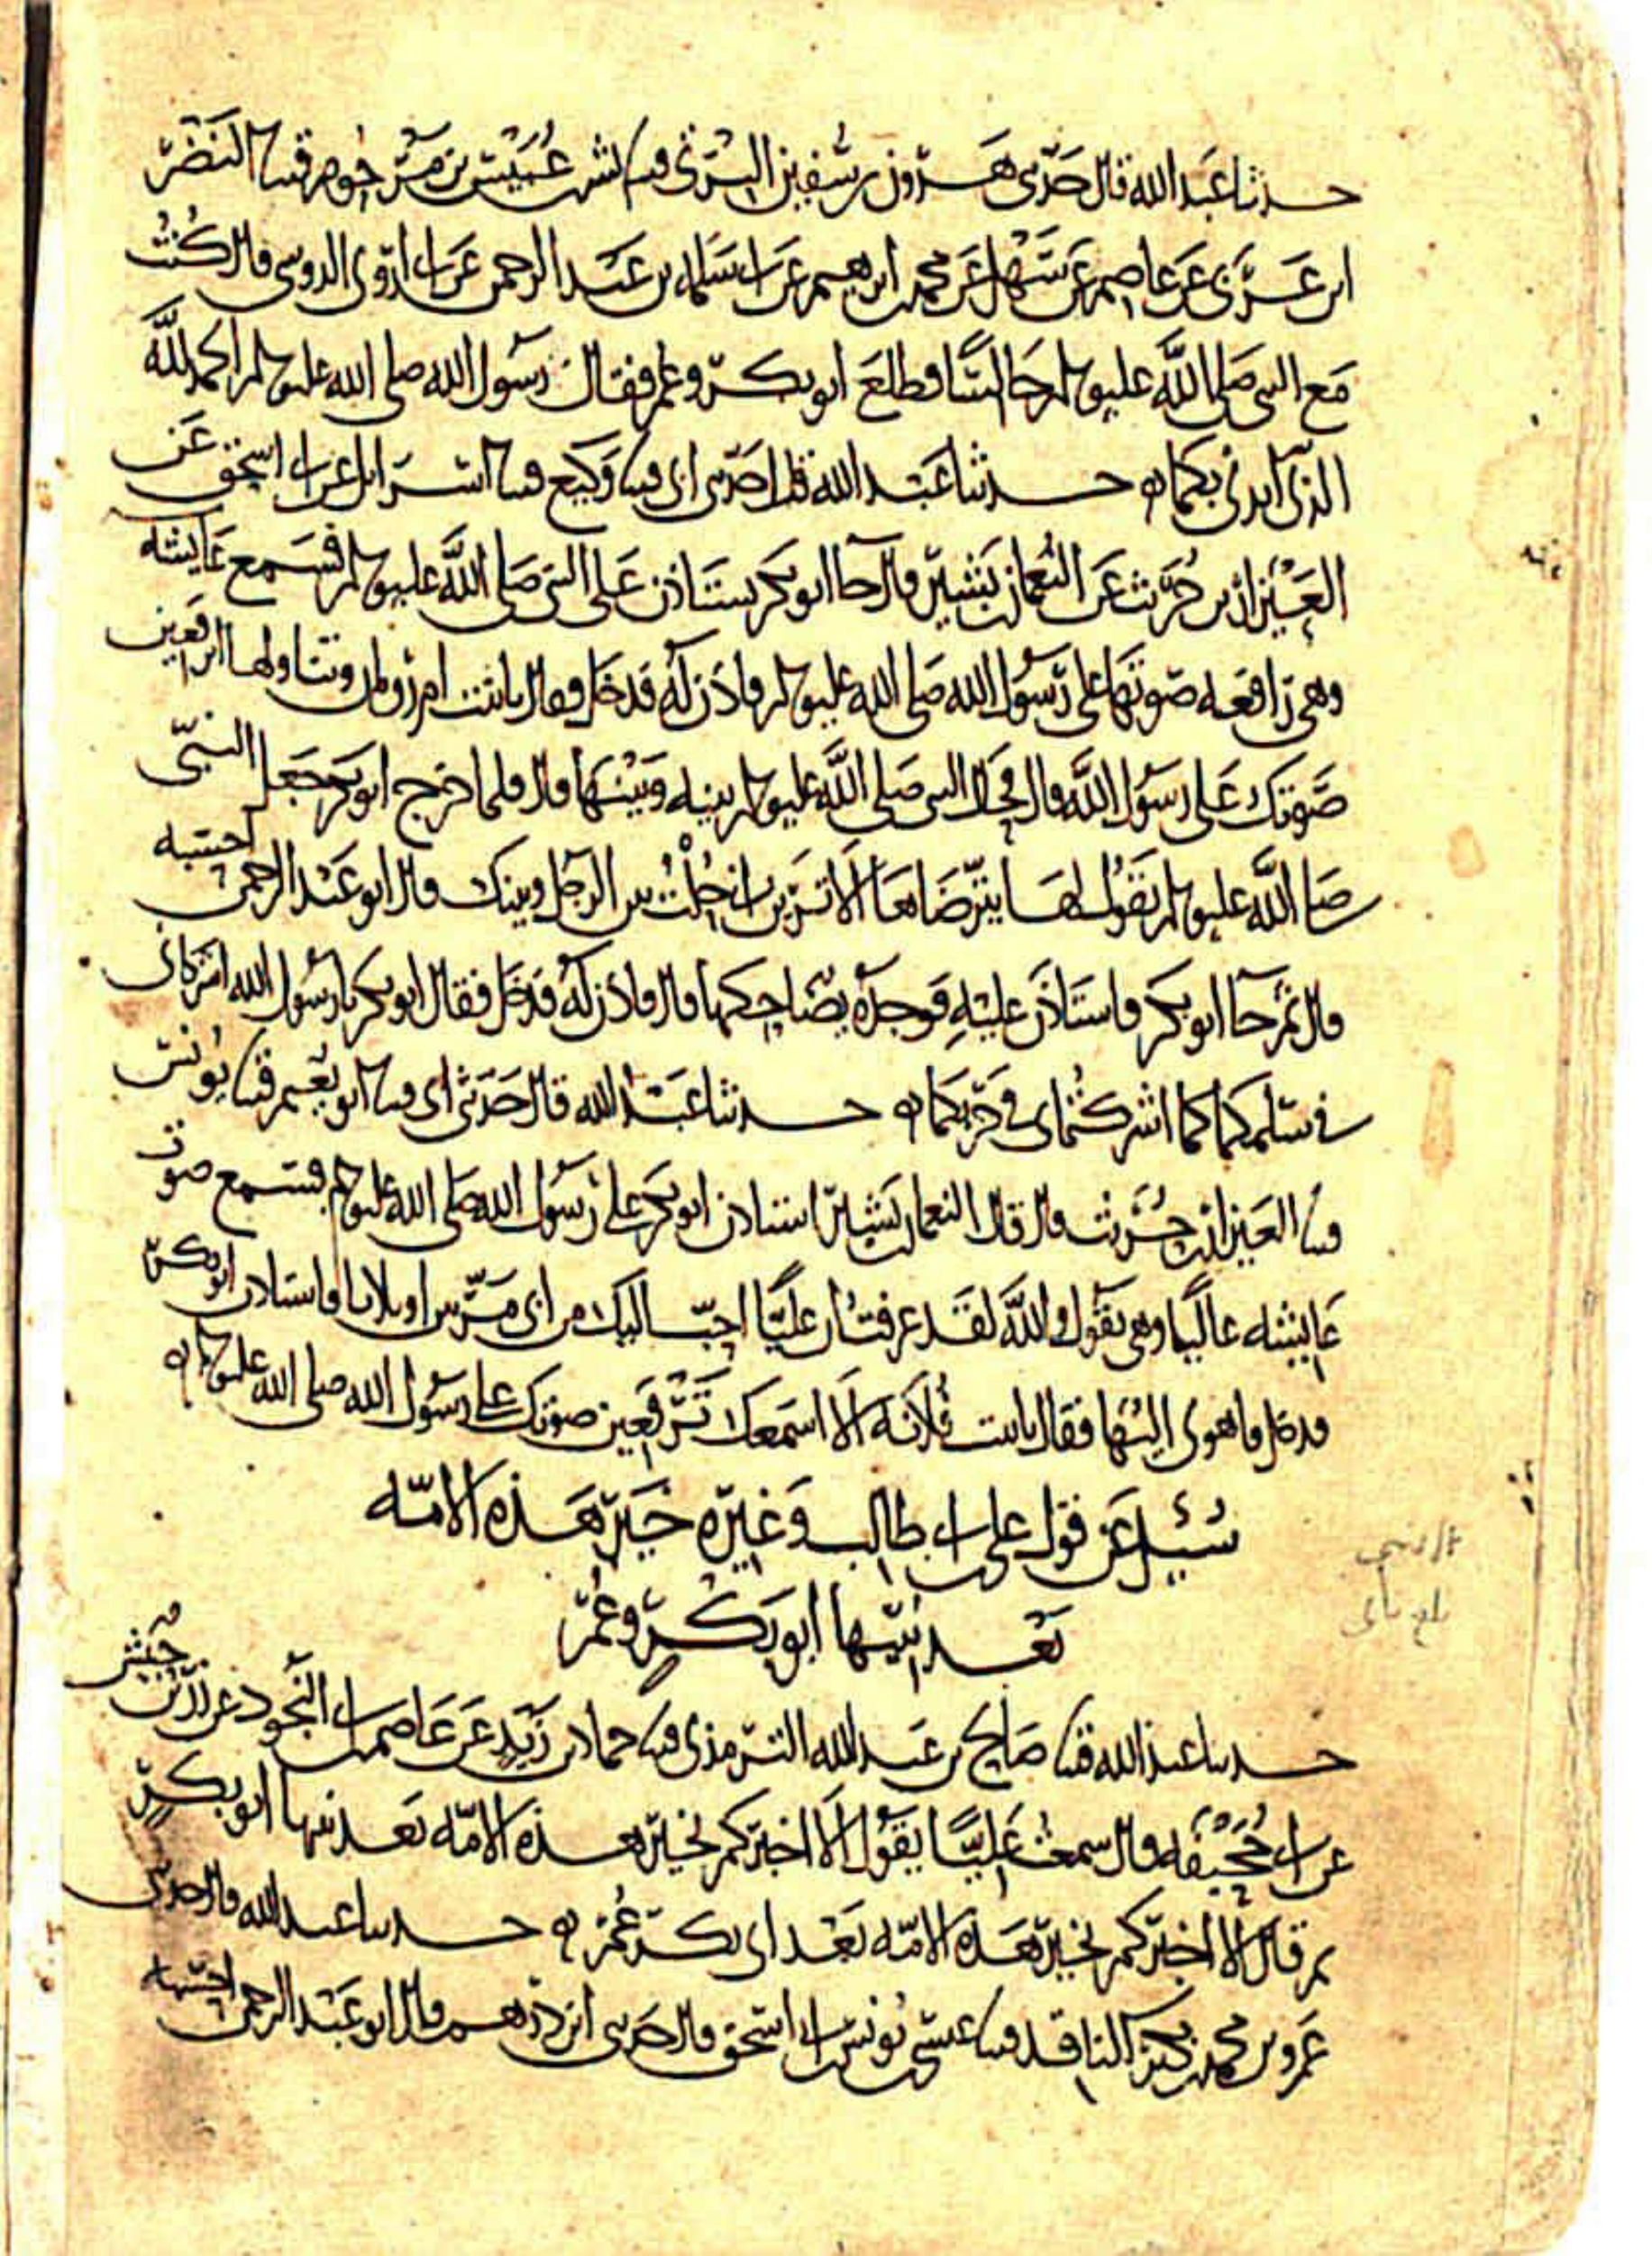 حدثنا عبد الله قال حدثني هرون بن سفين قثنا عبيس بن مرحوم قثنا النضر
ابن عربي عن عاصم عن سهيل عن محمد بن ابرهيم عن ابي سلمة بن عبد الرحمن عن ابي اروى الدوسي قال كنت
مع النبي صلى الله عليه وسلم جالسا فطلع ابو بكر وعمر فقال رسول الله صلى الله عليه وسلم الحمد لله
الذي ايدني بكما ه حدثنا عبد الله قال حدثني ابي قثنا وكيع قثنا اسرائل عن ابي اسحق عن
العيزار بن حريث عن النعمان بن بشير قال جا ابو بكر يستاذن على النبي صلى الله عليه وسلم فسمع عايشه
وهي رافعه صوتها على رسول الله صلى الله عليه وسلم فاذن له فدخل فقال يابنت ام رومان وتناولها اترفعين
صوتك على رسول الله قال فحال النبي صلى الله عليه وسلم بينه وبينها قال فلما خرج ابو بكر جعل النبي
صلى الله عليه وسلم يقول لها يترضاها الا ترين اني حلت بين الرجل وبينك قال ابو عبد الرحمن احسبه
قال ثم جا ابو بكر فاستاذن عليه فوجده يضاحكها قال فاذن له فدخل فقال ابو بكر يا رسول الله اشركاني
في سلمكما كما اشركتماني في حربكما ه حدثنا عبد الله قال حدثني ابي قثنا ابو نعيم قثنا يونس
قثنا العيزار بن حريث قال قال النعمان بن بشير استاذن ابو بكر على رسول الله صلى الله عليه وسلم فسمع صوت
عايشه عاليا وهي تقول والله لقد عرفت ان عليا احب اليك من ابي مرتين او ثلاثا فاستاذن ابو بكر
فدخل فاهوى اليها فقال يابنت فلانه الا اسمعك ترفعين صوتك على رسول الله صلى الله عليه وسلم ه
سئل عن قول علي بن ابي طالب وغيره خير هذه الامه
بعد نبيها ابو بكر وعمر
حدثنا عبد الله قثنا صالح بن عبد الله الترمذي قثنا حماد بن زيد عن عاصم بن ابي النجود عن زر بن حبيش
عن ابي جحيفه قال سمعت عليا يقول الا اخبركم بخير هذه الامه بعد نبيها ابو بكر
ثم قال الا اخبركم بخير هذه الامه بعد ابي بكر عمر ه حدثنا عبد الله قال حدثني
عمرو بن محمد بن بكير الناقد قثنا عيسى بن يونس بن ابي اسحق قال حدثني ابن درهم قال ابو عبد الرحمن احسبه